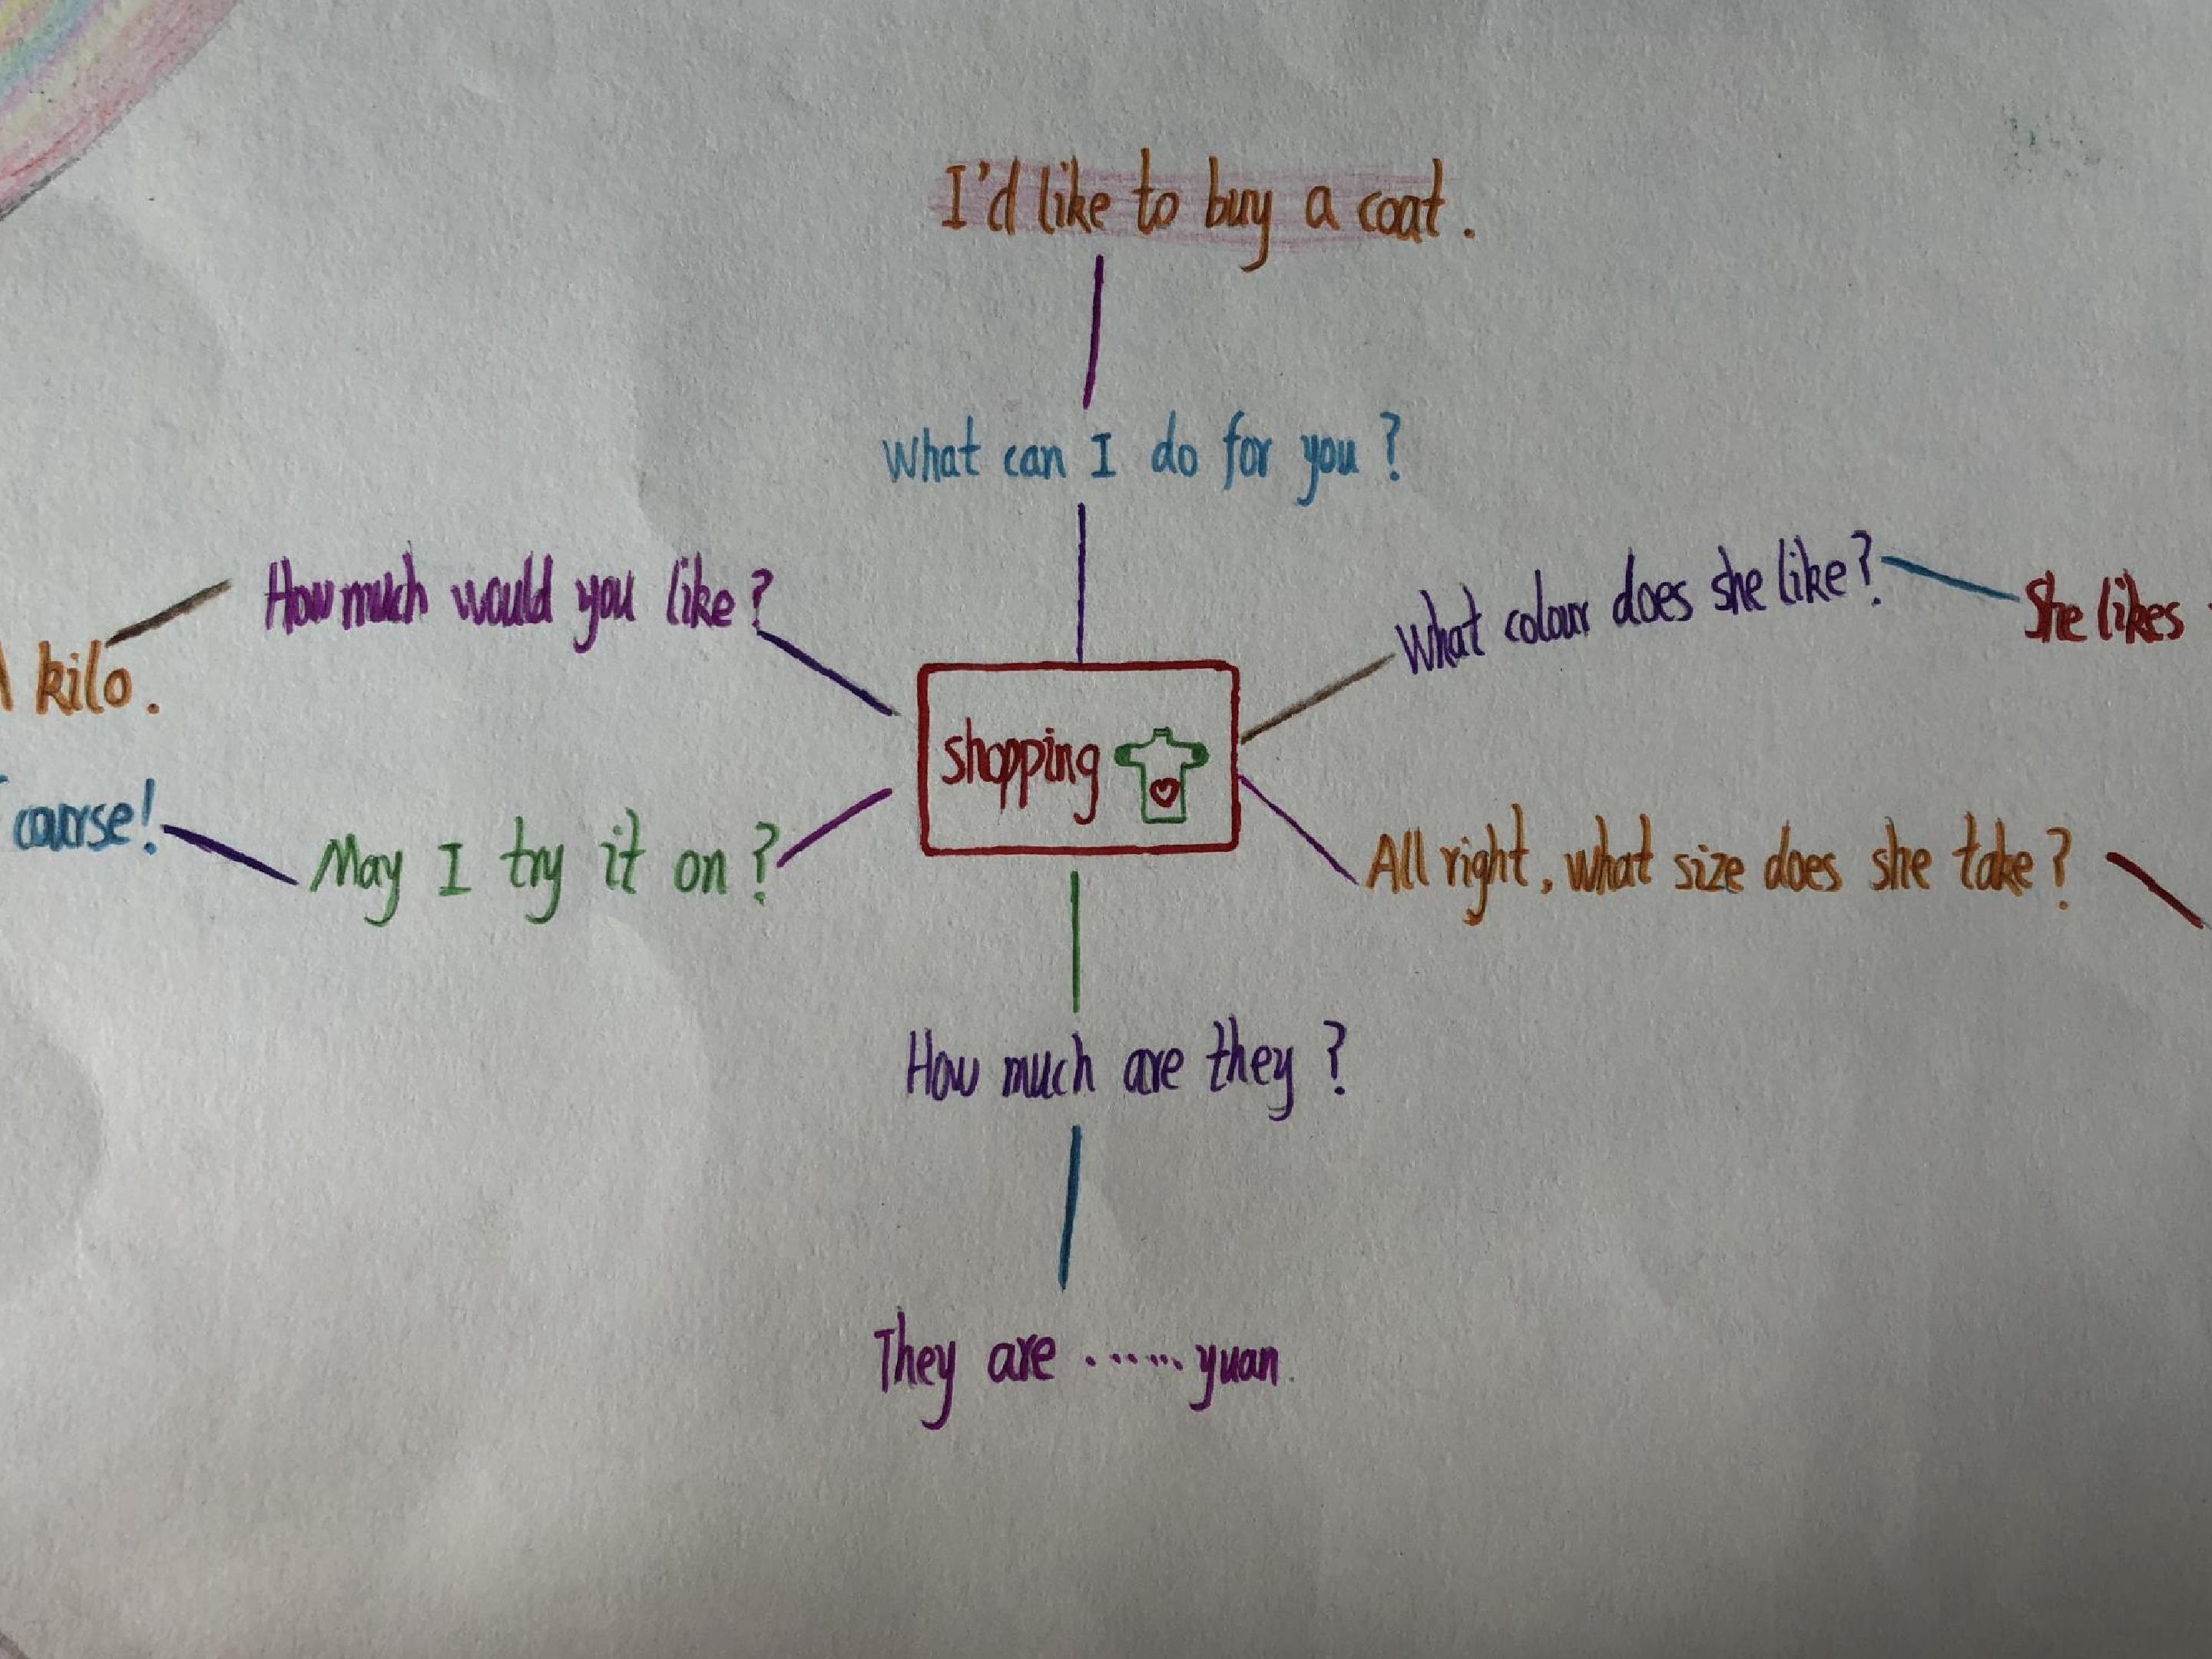 I'd like to buy a coat.
What can I do for you?
How much would you like?
kilo.
What colour does she like?
She likes
shopping
course!
May I try it on?
All right, what size does she take?
How much are they?
They are ...... yuan.